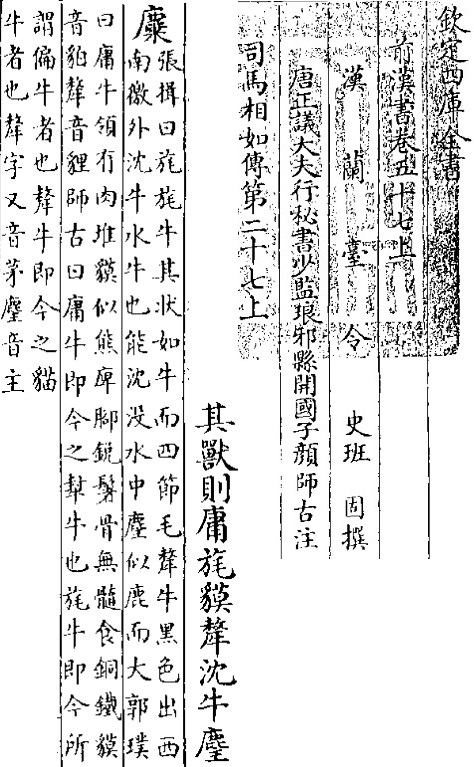 欽定四庫全書
前漢書卷五十七上
漢蘭臺令史班固撰
唐正議大夫行秘書少監琅邪縣開國子顏師古注
司馬相如傳第二十七上
其獸則庸旄貘犛沈牛麈
麋張揖曰旄旄牛其狀如牛而四節毛犛牛黑色出西
南徼外沈牛水牛也能沈没水中麈似鹿而大郭璞
曰庸牛領有肉堆貘似熊庳腳銳鬐骨無髓食銅鐵貘
音貊犛音貍師古曰庸牛即今之犎牛也旄牛即今所
謂偏牛者也犛牛即今之貓
牛者也犛字又音茅麈音主